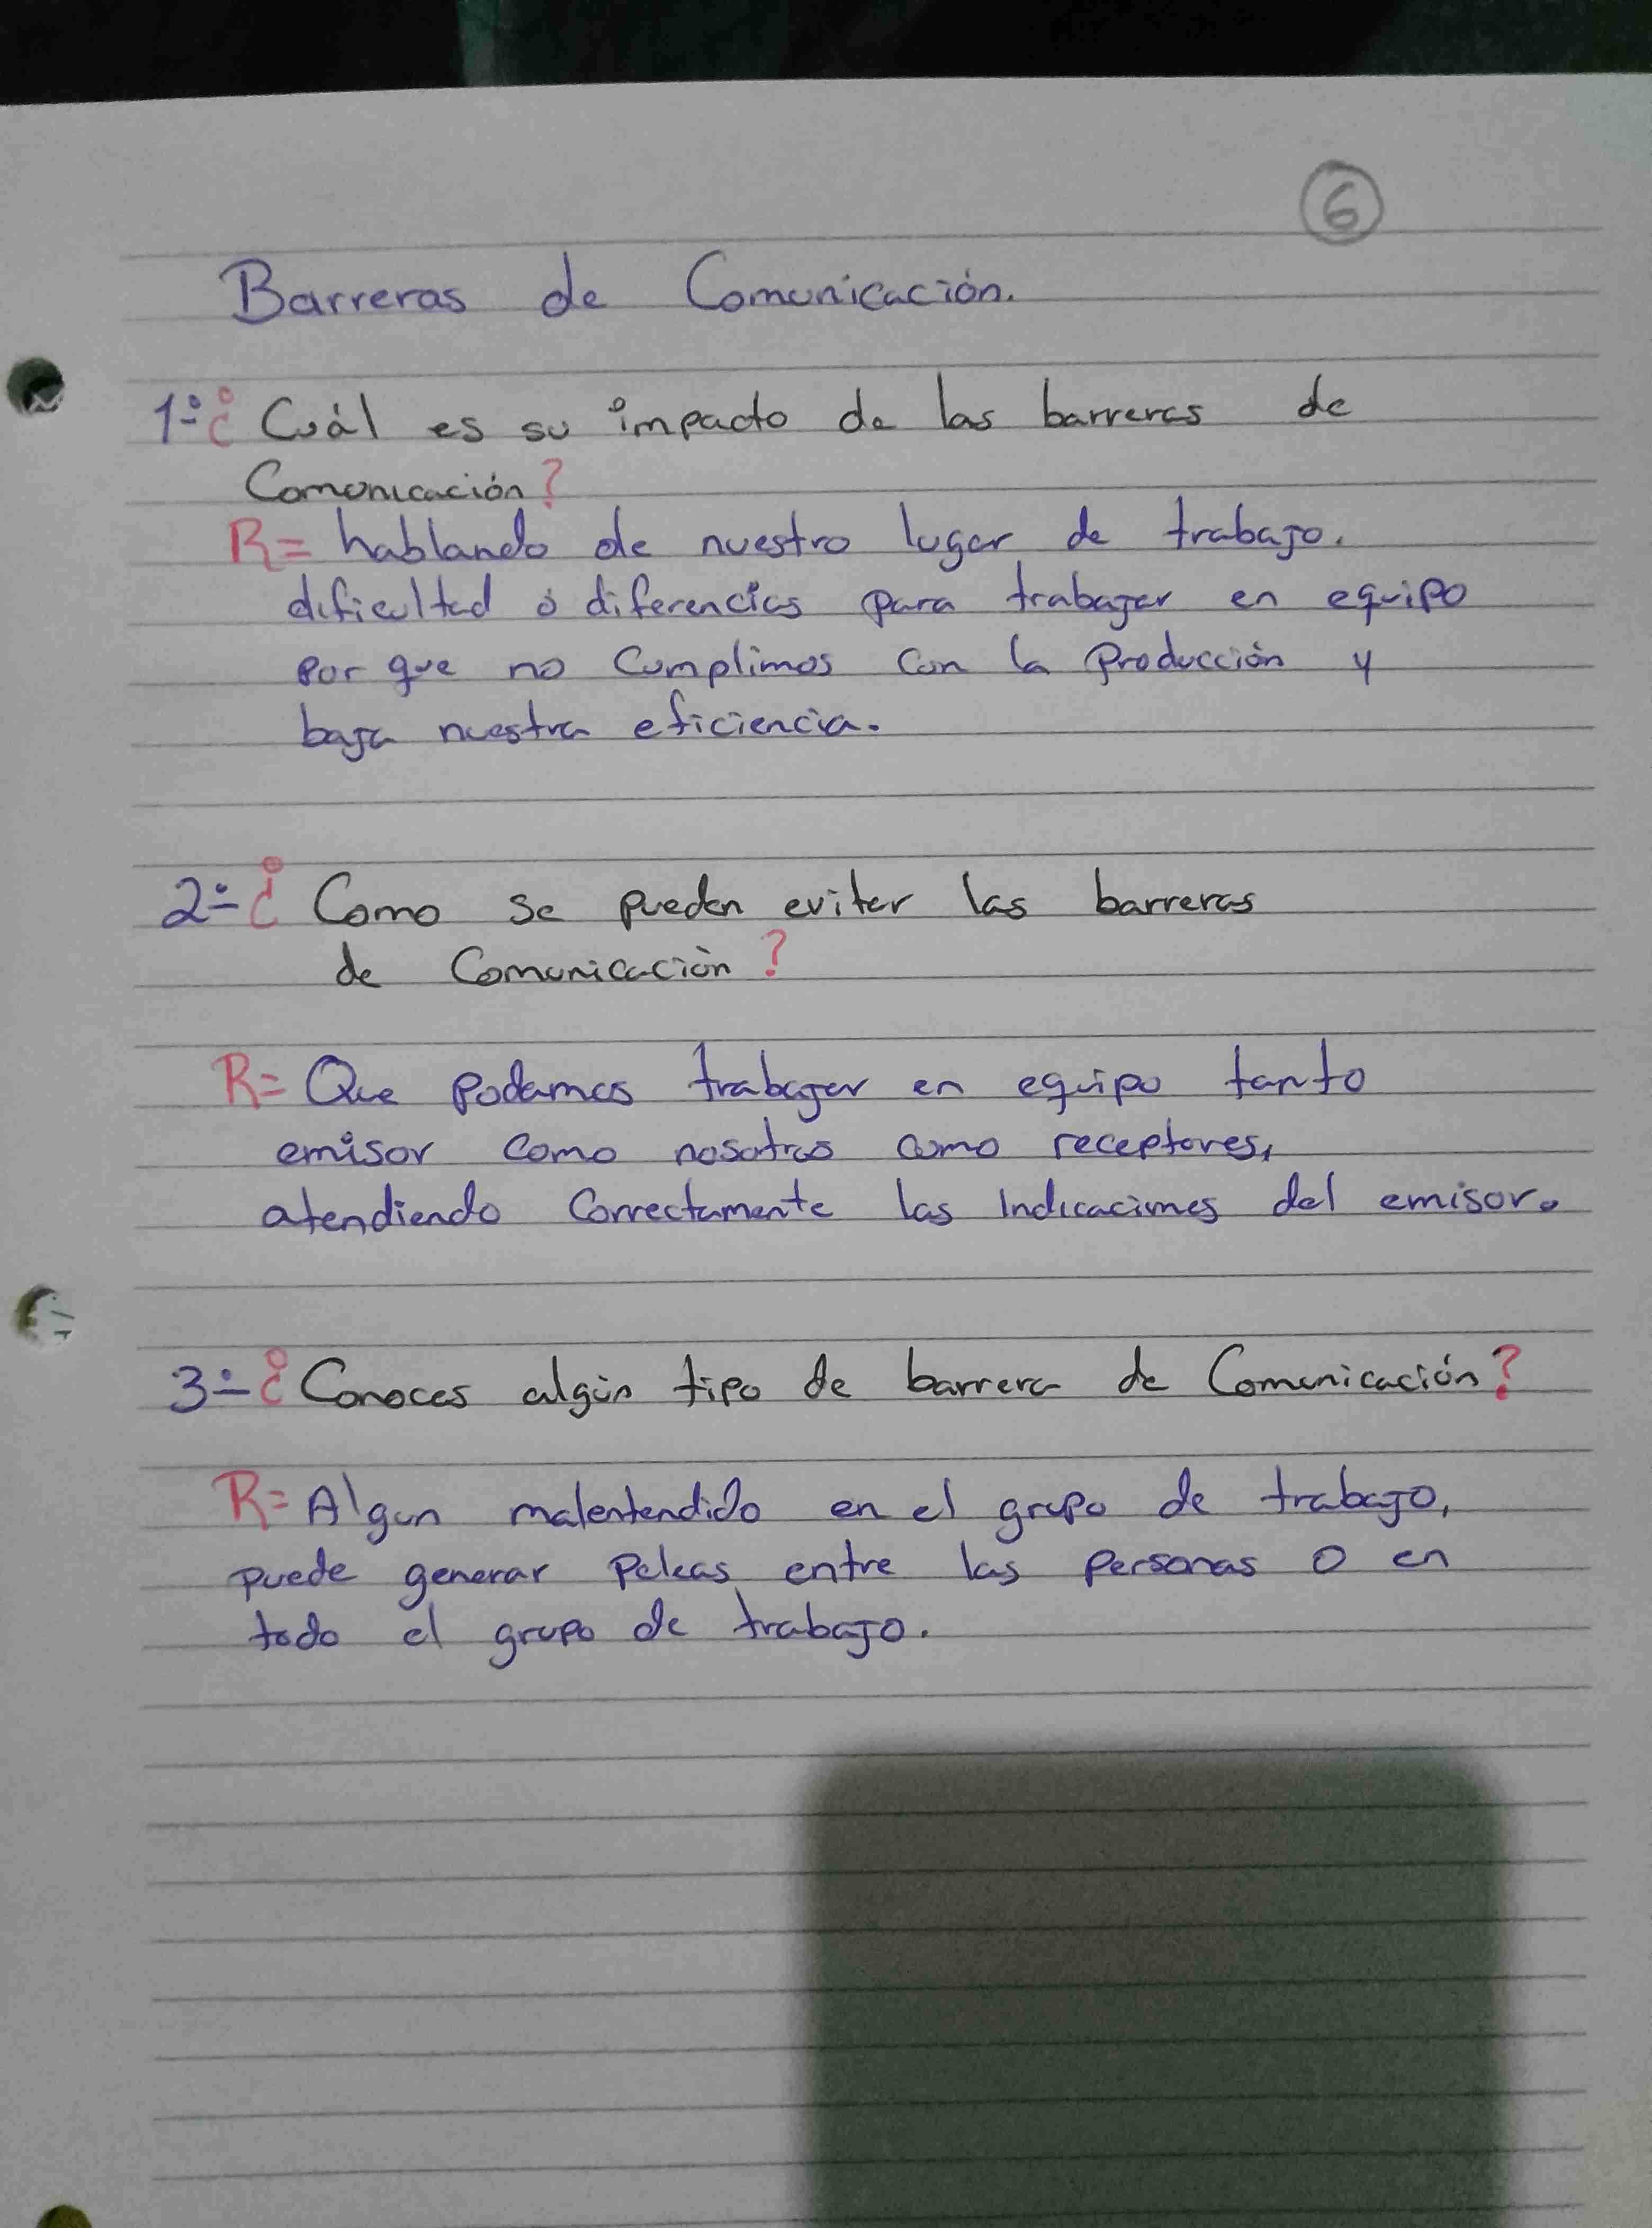 6
Barreras de Comunicación.
1.- ¿Cuál es su impacto de las barreras de
Comunicación?
R= hablando de nuestro lugar de trabajo.
dificultad ó diferencias para trabajar en equipo
por que no Cumplimos Con la Producción y
baja nuestra eficiencia.
2.- ¿Como se pueden eviter las barreras
de Comunicación?
R= Que podamos trabajar en equipo tanto
emisor como nosotros como receptores,
atendiendo Correctamente las Indicaciones del emisor.
3.- ¿Conoces algún tipo de barrera de Comunicación?
R= Algun malentendido en el grupo de trabajo,
puede generar Peleas entre las Personas O en
todo el grupo de trabajo.